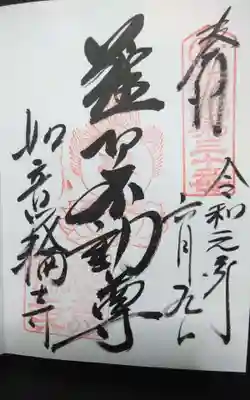 奉拝
令和元年
六月九日
難切不動尊
如意輪寺